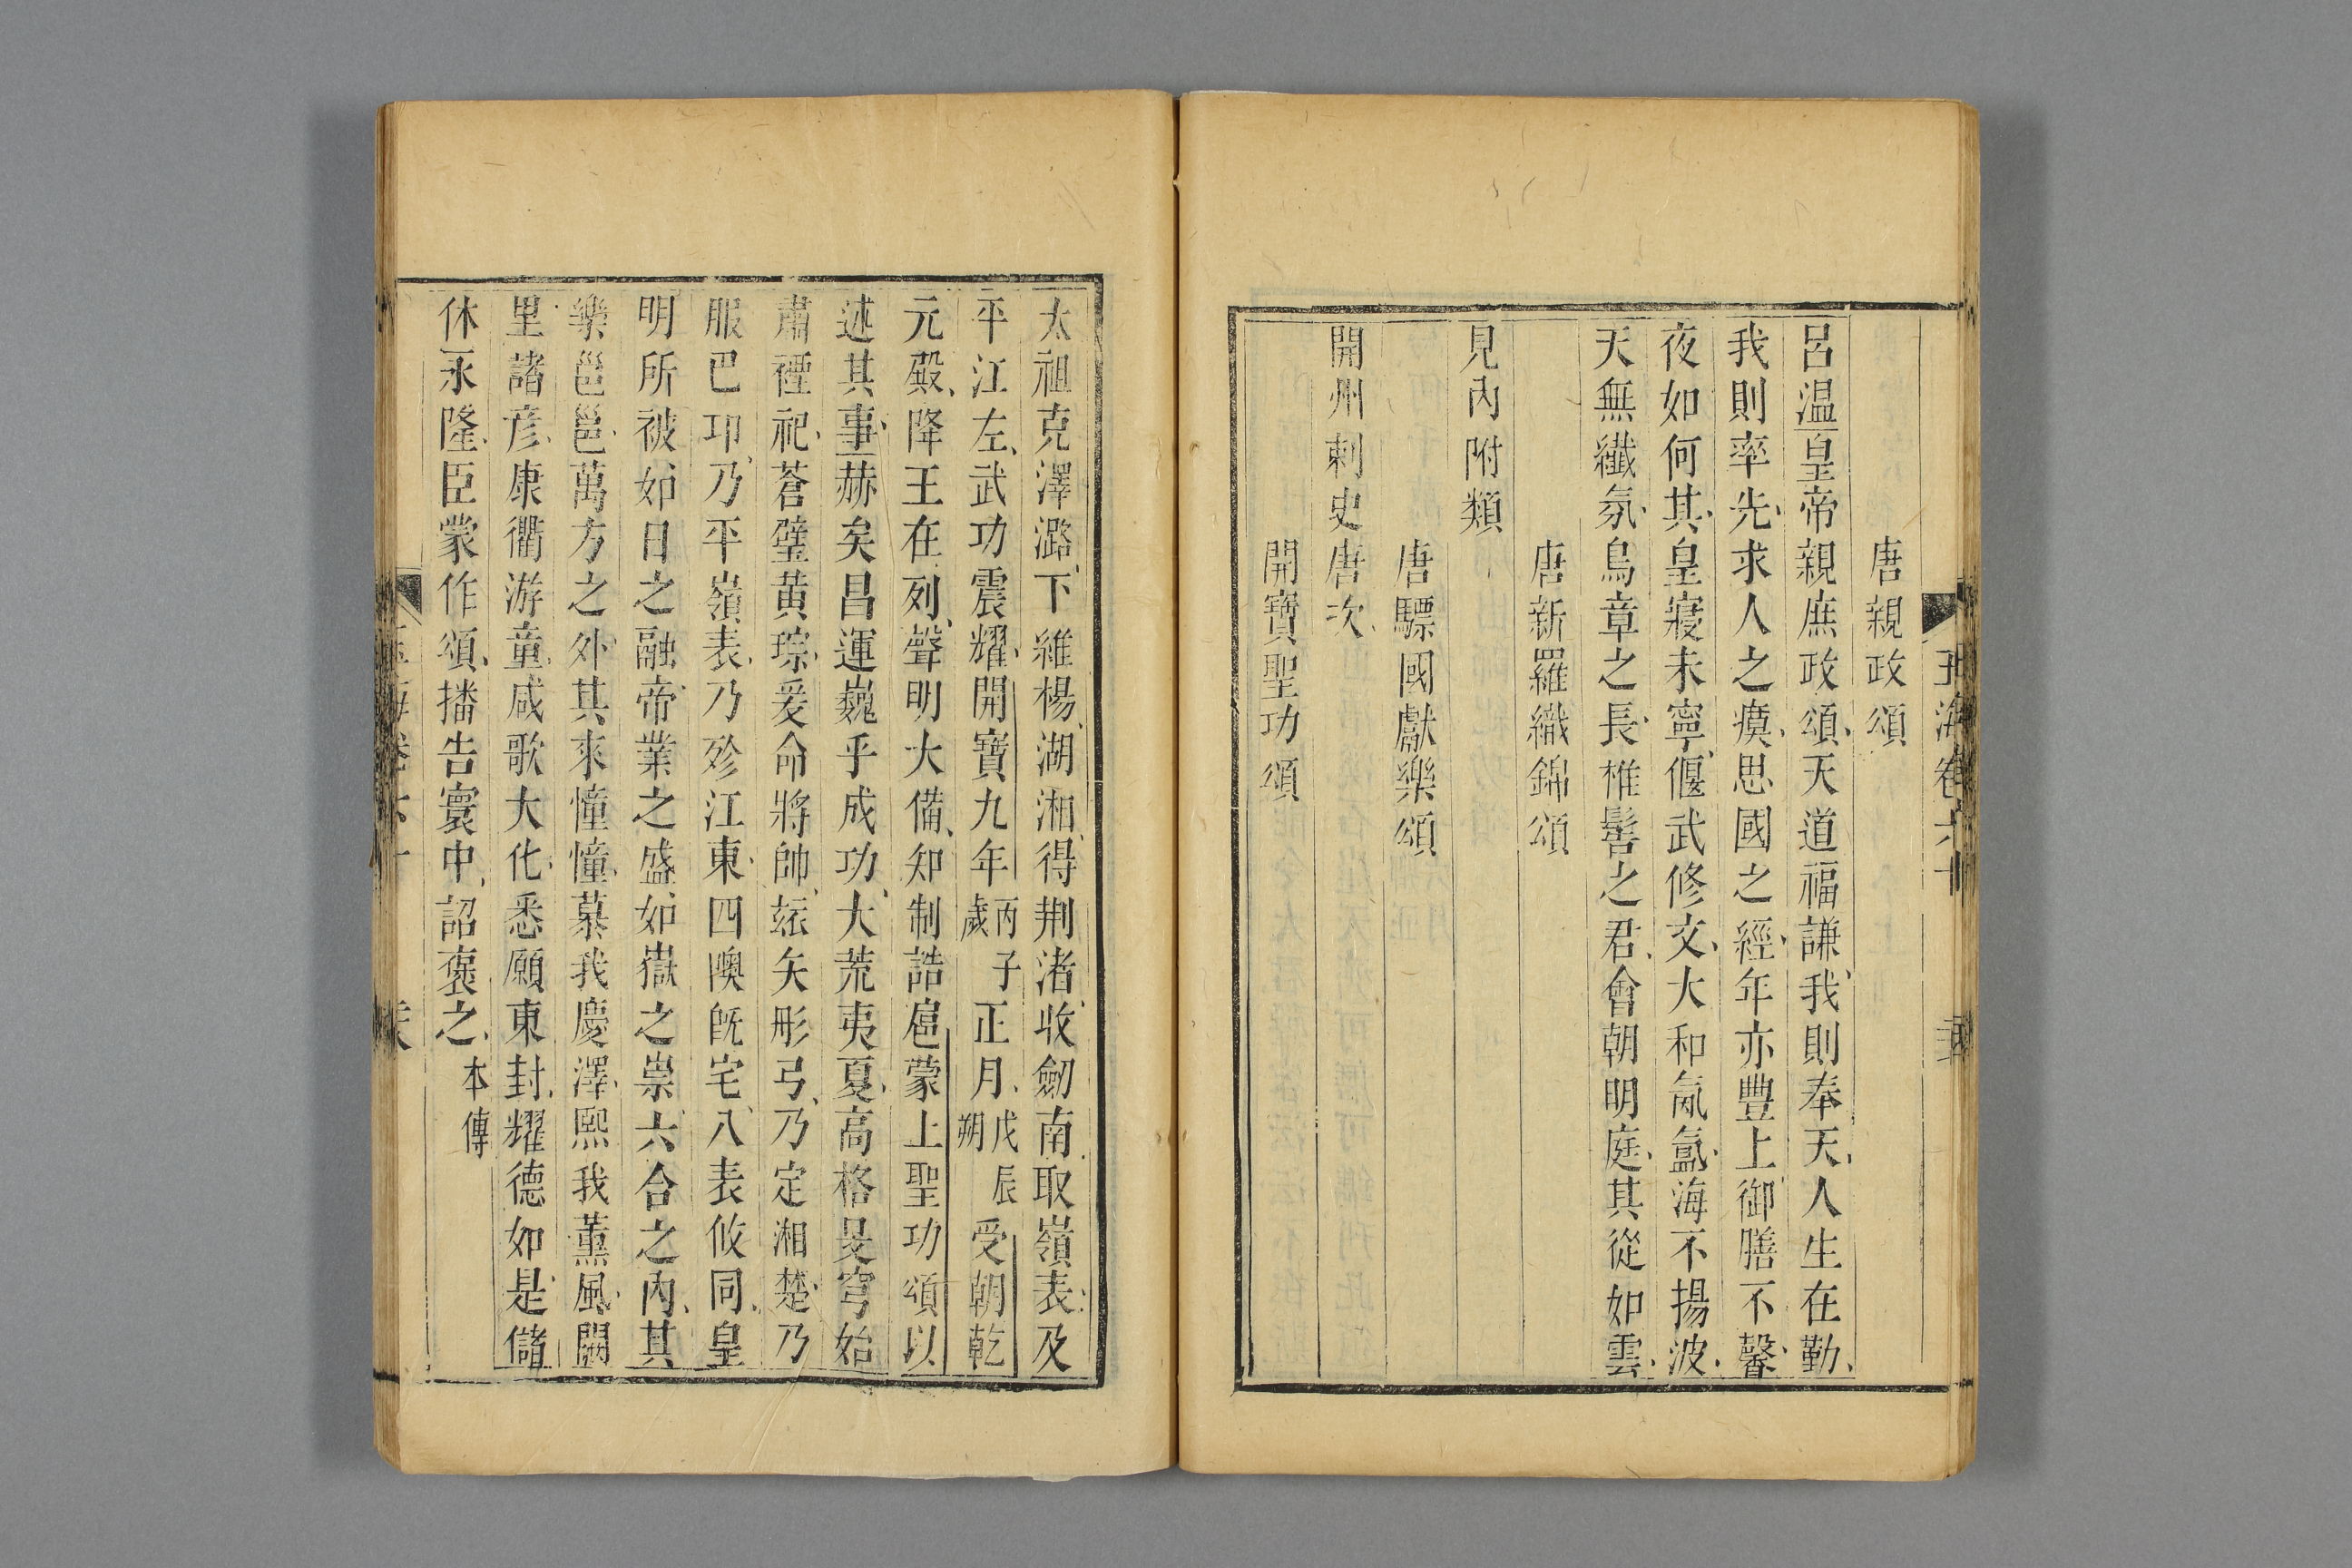 玉海卷六十
唐親政頌
呂温皇帝親庶政頌天道福謙我則奉天人生在勤
我則率先求人之瘼思國之經年亦豐上御膳不馨
夜如何其皇寢未寧偃武修文大和氤氳海不揚波
天無纖氛鳥章之長椎髻之君會朝明庭其從如雲
唐新羅織錦頌
見內附類
唐驃國獻樂頌
開州刺史唐次
開寶聖功頌
太祖克澤潞下維楊湖湘得荆渚收劒南取嶺表及
平江左武功震耀開寶九年丙子歲正月戊辰朔受朝乾
元殿降王在列聲明大備知制誥扈蒙上聖功頌以
述其事赫矣昌運巍乎成功大荒夷夏高格旻穹始
肅禋祀蒼璧黄琮爰命將帥玈矢彤弓乃定湘楚乃
服巴卭乃平嶺表乃殄江東四隩旣宅八表攸同皇
明所被如日之融帝業之盛如嶽之崇六合之內其
樂邕邕萬方之外其來憧憧慕我慶澤熙我薰風闕
里諸彦康衢游童咸歌大化悉願東封耀德如是儲
休永隆臣蒙作頌播告寰中詔褒之本傳